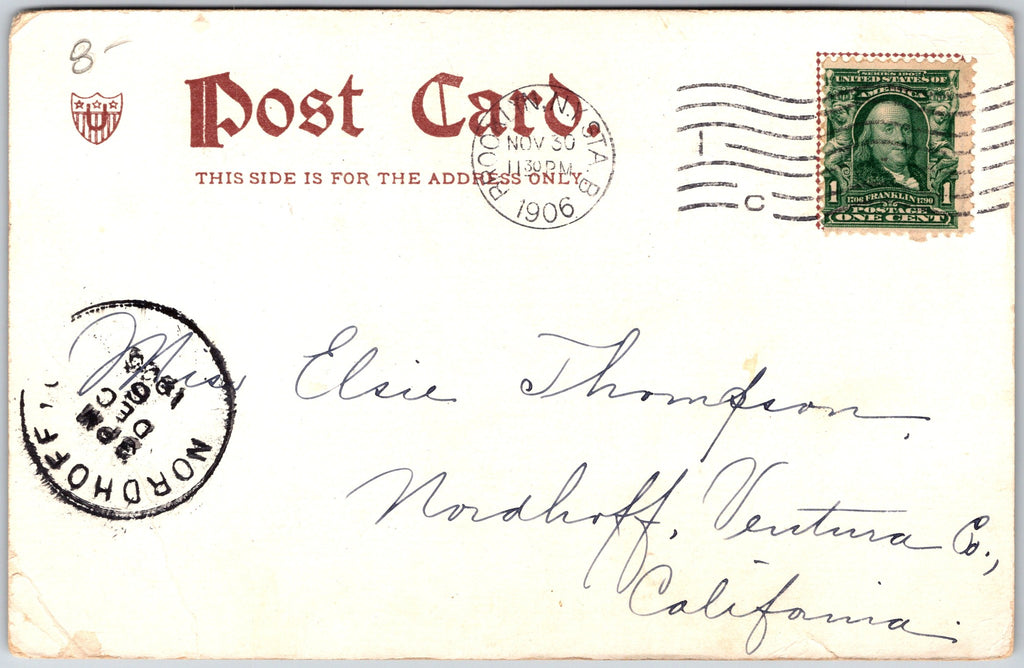 8-
U
Post Card.
THIS SIDE IS FOR THE ADDRESS ONLY.
BROOKLYN, N.Y. STA. B
NOV 30
11 30 PM
1906
1
C
SERIES 1902
UNITED STATES OF
AMERICA
1 1706 FRANKLIN 1790 1
POSTAGE
ONE CENT
NORDHOFF
DEC
PM
Miss Elsie Thompson,
Nordhoff, Ventura Co.,
California.